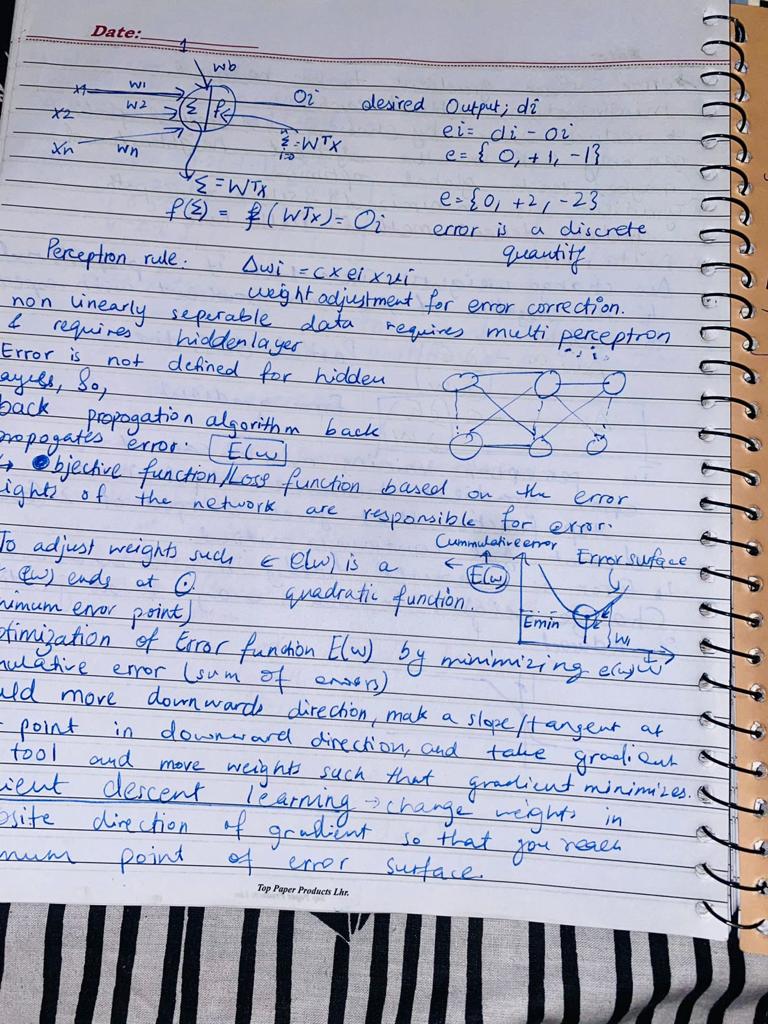 Date:
1
wb
x1 w1 Σ f Oi desired Output; di
x2 w2 ei = di - oi
xn wn n Σ i=0 = WTX e = { 0, +1, -1}
Σ = WTX e = {0, +2, -2}
f(Σ) = f (WTX) = Oi error is a discrete
quantity
Perceptron rule: Δwi = c x ei x xi
weight adjustment for error correction.
non linearly seperable data requires multi perceptron
& requires hidden layer
Error is not defined for hidden
ayers, So,
back propogation algorithm back
propogates error. E(w)
↳ Objective function/Loss function based on the error
ights of the network are responsible for error.
Cummulative error
To adjust weights such ∈ e(w) is a ← E(w) Error surface
e(w) ends at ⊙ quadratic function.
nimum error point) Emin W1
ptimization of Error function E(w) by minimizing e(w) w
mulative error (sum of errors)
uld move downwards direction, mak a slope/tangent at
point in downward direction, and take gradient
tool and move weights such that gradient minimizes.
ient descent learning → change weights in
osite direction of gradient so that you reach
mum point of error surface.
Top Paper Products Lhr.